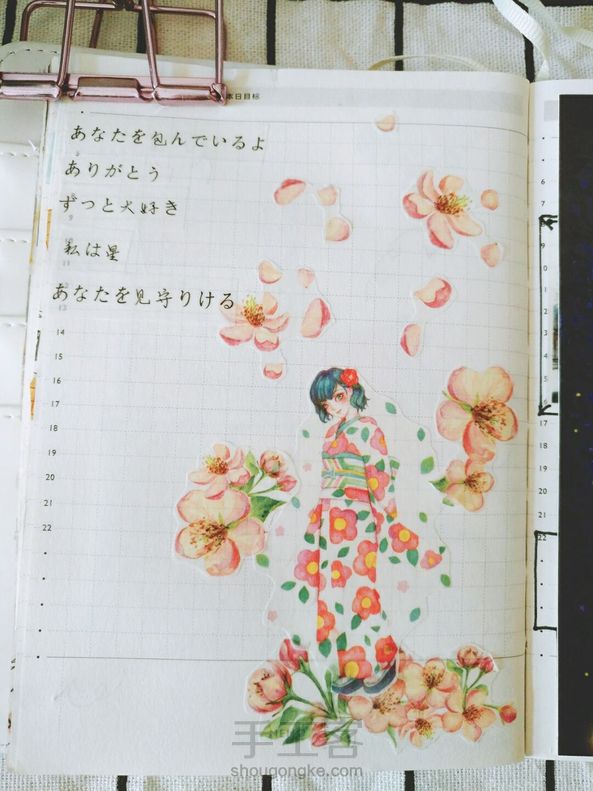 本日目标
あなたを包んでいるよ
ありがとう
ずっと大好き
私は星
あなたを見守りける
14
15
16
17
18
19
20
21
22
6
7
17
18
19
20
21
手工客
shougongke.com